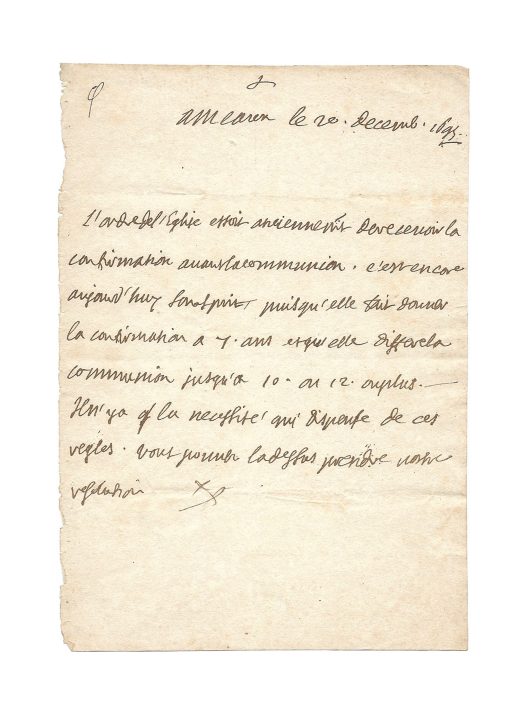 A Meaux le 20. decemb. 1695.
L'ordre de l'Eglise estoit anciennemt de recevoir la
confirmation avant la communion. c'est encore
aujourd'huy son esprit, puisqu'elle fait donner
la confirmation a 7. ans et qu'elle differe la
communion jusqu'a 10. ou 12. ou plus.
Il n'y a q la necessité qui dispense de ces
regles. vous pouvez la dessus prendre vostre
resolution